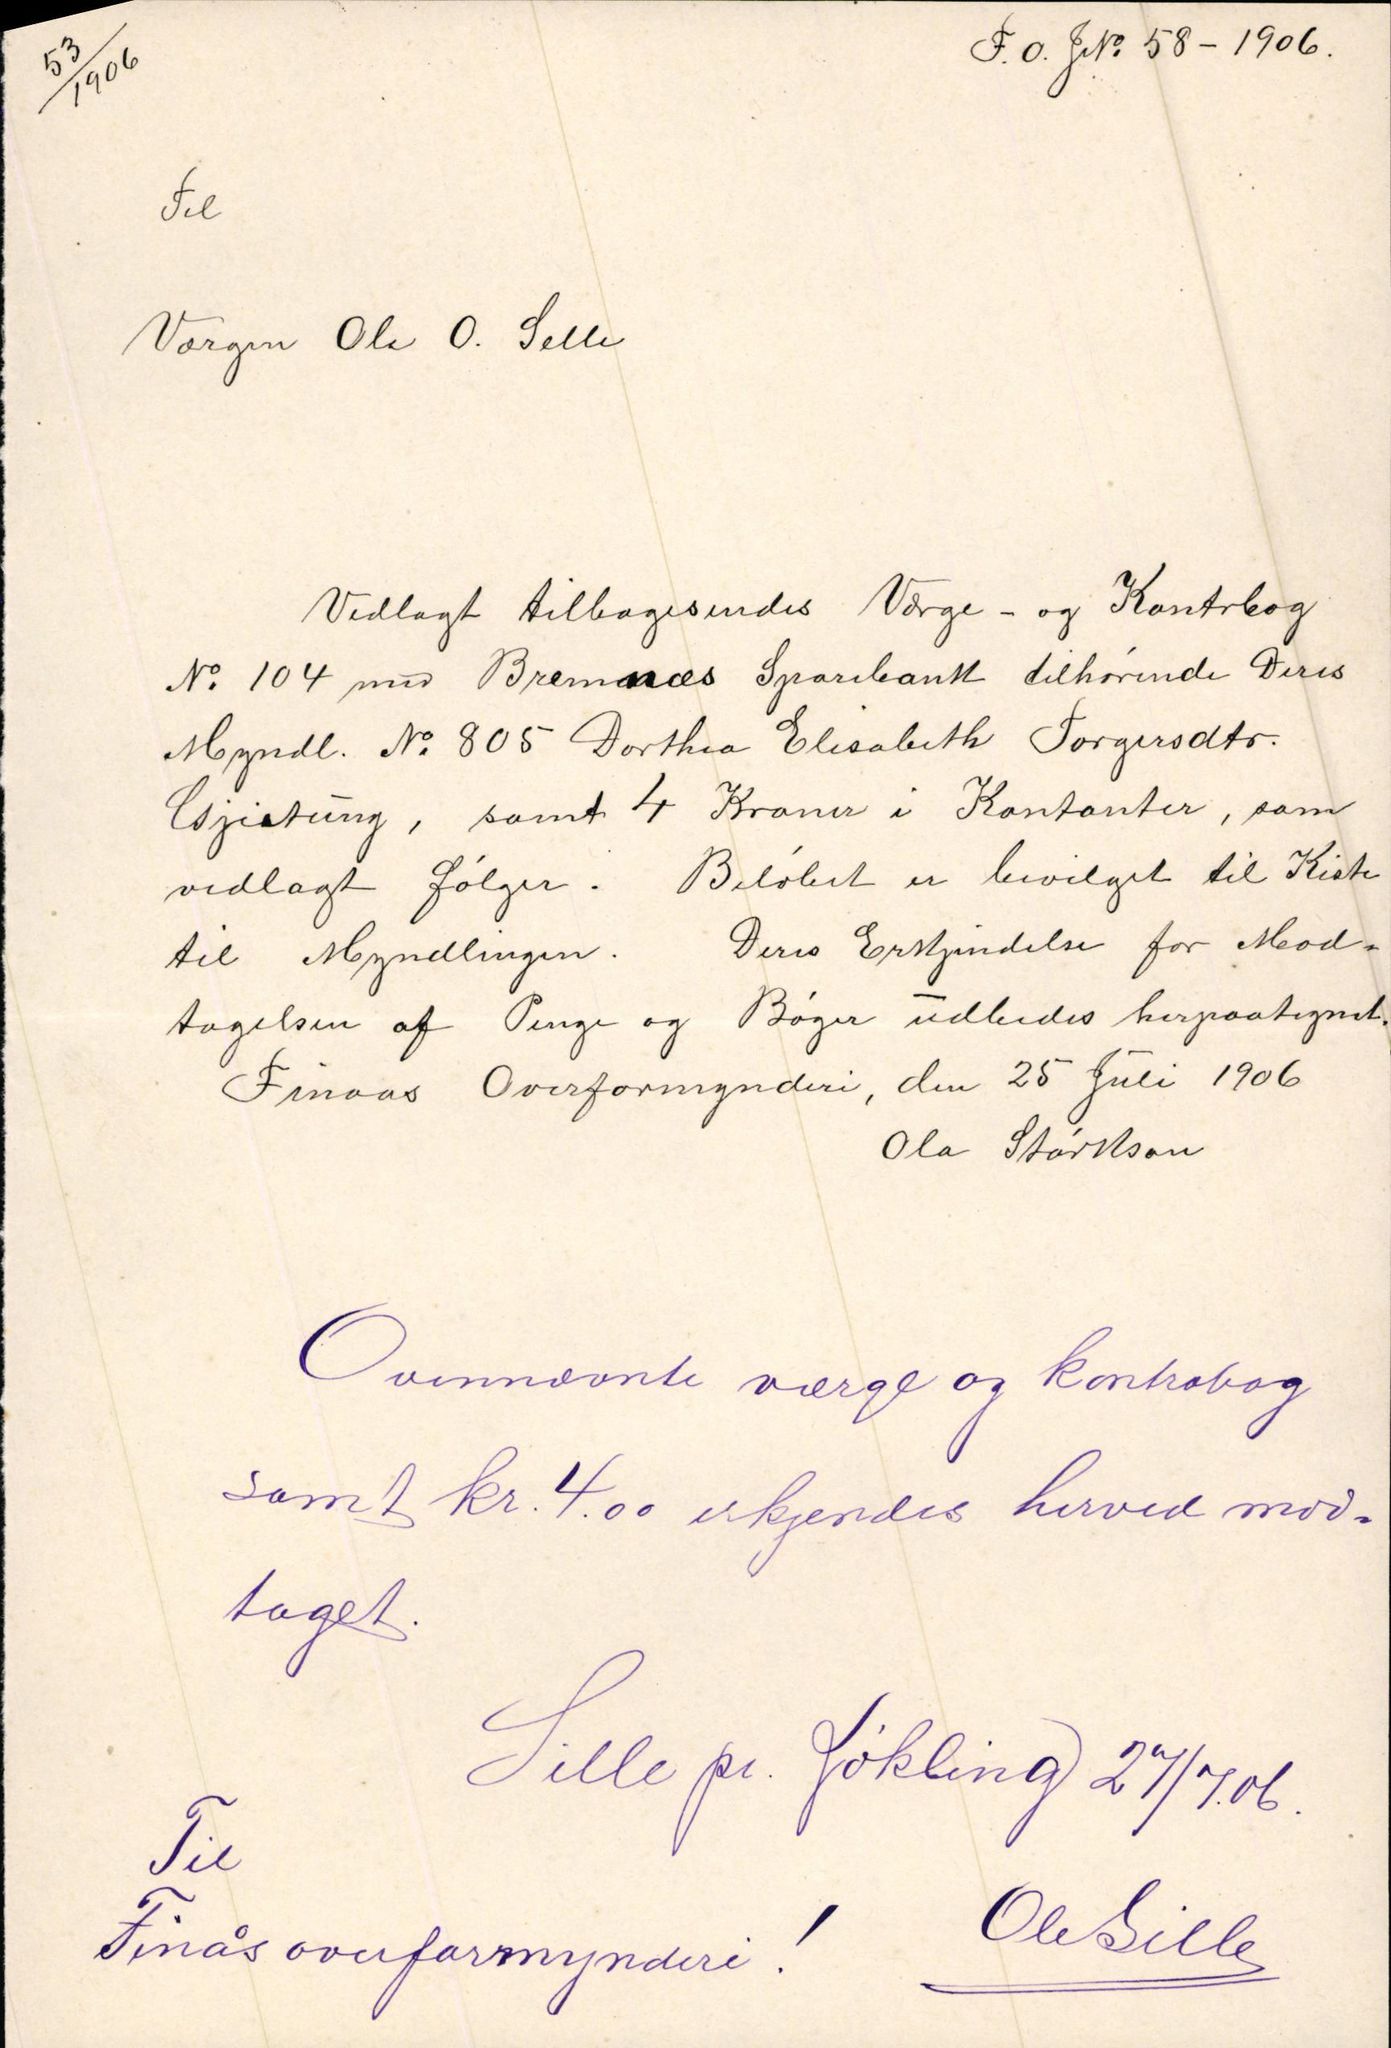 53/1906
F. O. J№. 58 - 1906.
Til
Værgen Ole O. Selle
Vedlagt tilbagesendes Værge- og Kontrbog
No. 104 med Bremnæs Sparebank tilhørende Deres
Myndl. No. 805 Dorthea Elisabeth Torgersdtr.
samt 4 Kroner i Kontanter, som
vedlagt følger. Beløbet er bevilget til Kiste
til Myndlingen. Deres Erkjendelse for Mod-
tagelsen af Penge og Bøger udbedes herpaategnet.
Finaas Overformynderi, den 25 Juli 1906
Ola Størkson
Ovennævnte værge og kontrabog
samt kr. 4.00 erkjendes herved mod-
taget.
Selle pr. Jøkling 27/7.06.
Til
Finås overformynderi!
Ole Selle